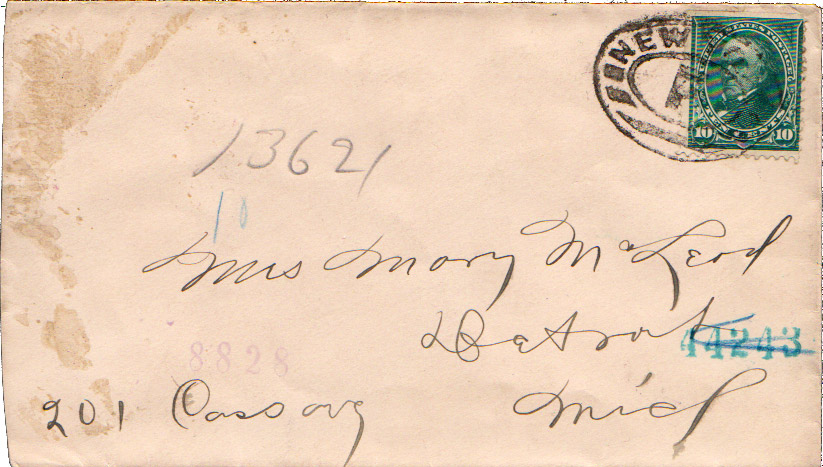 NEW
UNITED STATES POSTAGE
TEN CENTS
10 10
13621
10
Mrs Mary McLeod
Detroit
44243
8828
201 Cass avg
Mich